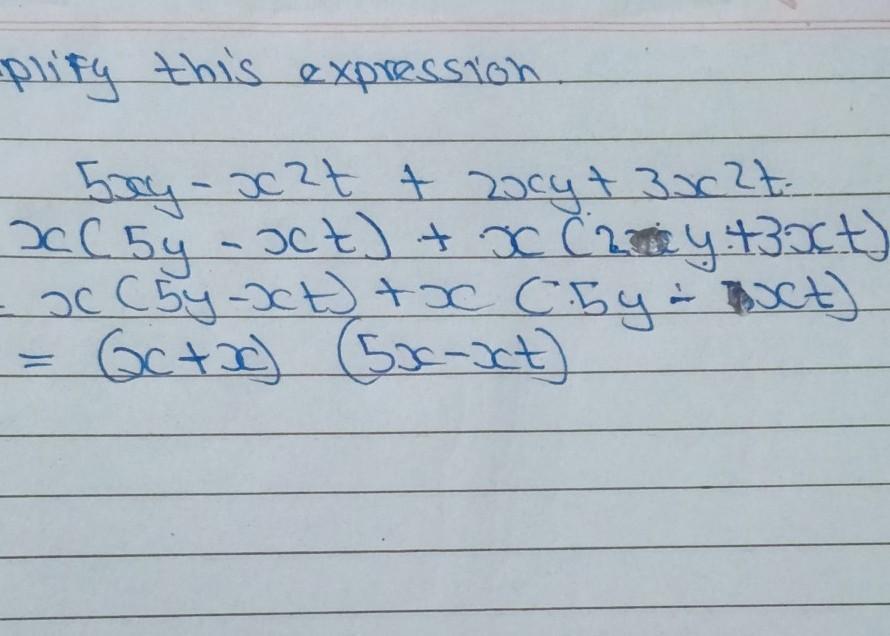 plify this expression.
5xy - x2t + 2xy + 3x2t.
x(5y - xt) + x(2y + 3xt)
- x(5y - xt) + x (5y - xt)
= (x + x) (5x - xt)